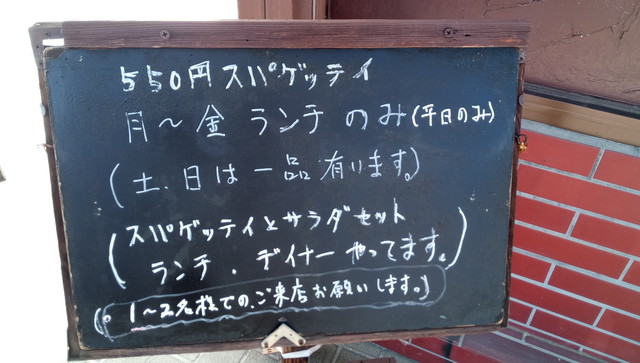 550円スパゲッティ
月〜金 ランチ のみ(平日のみ)
(土.日は一品有います。)
(スパゲッティとサラダセット
ランチ.ディナーやってます。)
(。1〜2名様での、ご来店お願いします。)